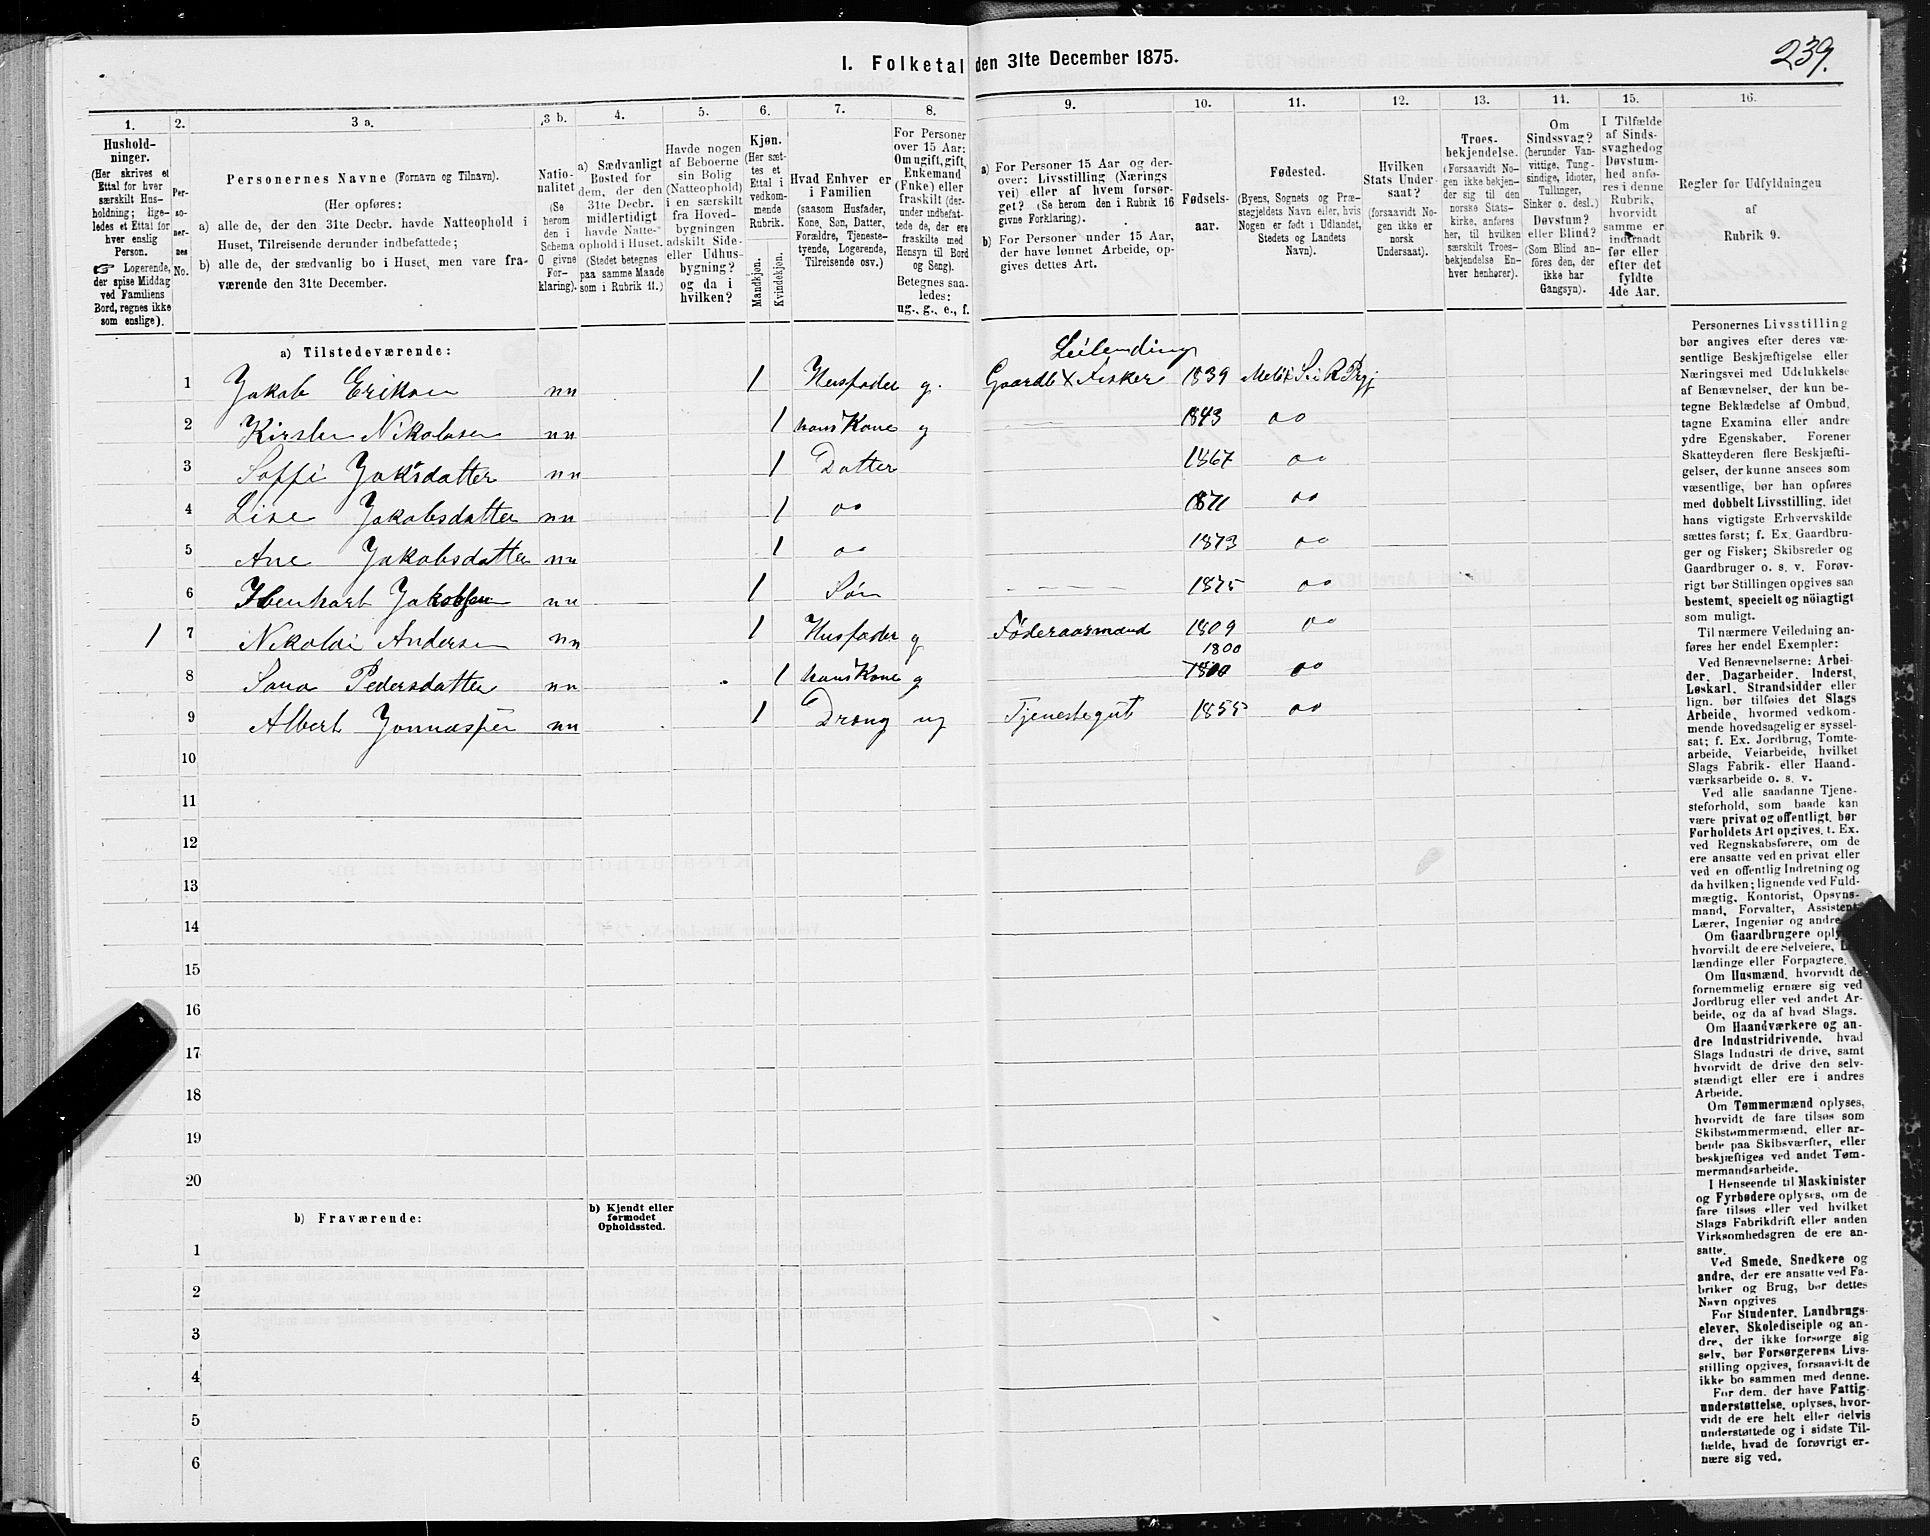 239.
I. Folketal den 31te December 1875.
1. 2. 3 a. 3 b. 4. 5. 6. 7. 8. 9. 10. 11. 12. 13. 14. 15. 16.
Hushold-
ninger.
(Her skrives et
Ettal for hver
særskilt Hus-
holdning; lige-
ledes et Ettal for
hver enslig
Person.
☞ Logerende,
der spise Middag
ved Familiens
Bord, regnes ikke
som enslige).
Per-
so-
ner-
nes
No.
Personernes Navne (Fornavn og Tilnavn).
(Her opføres:
a) alle de, der den 31te Decbr. havde Natteophold i
Huset, Tilreisende derunder indbefattede;
b) alle de, der sædvanlig bo i Huset, men vare fra-
værende den 31te December.
Natio-
nalitet
(Se
herom
den i
Schema
O givne
For-
klaring).
a) Sædvanligt
Bosted for
dem, der den
31te Decbr.
midlertidigt
havde Natte-
ophold i Huset.
(Stedet betegnes
paa samme Maade
som i Rubrik 11.)
Havde nogen
af Beboerne
sin Bolig
(Natteophold)
i en særskilt
fra Hoved-
bygningen
adskilt Side-
eller Udhus-
bygning?
og da i
hvilken?
Kjøn.
(Her sæt-
tes et
Ettal i
vedkom-
mende
Rubrik.
Mandkjøn.
Kvindekjøn.
Hvad Enhver er
i Familien
(saasom Husfader,
Kone, Søn, Datter,
Forældre, Tjeneste-
tyende, Logerende,
Tilreisende osv.)
For Personer
over 15 Aar:
Om ugift, gift,
Enkemand
(Enke) eller
fraskilt (der-
under indbefat-
tede de, der ere
fraskilte med
Hensyn til Bord
og Seng).
Betegnes saa-
ledes:
ug., g., e., f.
a) For Personer 15 Aar og der-
over: Livsstilling (Nærings
vei) eller af hvem forsør-
get? (Se herom den i Rubrik 16
givne Forklaring).
b) For Personer under 15 Aar,
der have lønnet Arbeide, op-
gives dettes Art.
Fødsels-
aar.
Fødested.
(Byens, Sognets og Præ-
stegjeldets Navn eller, hvis
Nogen er født i Udlandet,
Stedets og Landets
Navn).
Hvilken
Stats Under-
saat?
(forsaavidt No-
gen ikke er
norsk
Undersaat).
Troes-
bekjendelse.
(Forsaavidt No-
gen ikke bekjen-
der sig til den
norske Stats-
kirke, anføres
her, til hvilken
særskilt Troes-
bekjendelse En-
hver henhører).
Om
Sindssvag?
(herunder Van-
vittige, Tung-
sindige, Idioter,
Tullinger,
Sinker o. desl.)
Døvstum?
eller Blind?
(Som Blind an-
føres den, der
ikke har
Gangsyn).
I Tilfælde
af Sinds-
svaghed og
Døvstum-
hed anfø-
res i denne
Rubrik,
hvorvidt
samme er
indtraadt
før eller
efter det
fyldte
4de Aar.
Regler for Udfyldningen
af
Rubrik 9.
a) Tilstedeværende:
Leilending
1 Jakob Eriksen nn 1 Husfader g. Gaardb X Fisker 1839
2 Kirsten Nikolasen nn 1 hans Kone g 1843 oo
3 Soffi Jakbsdatter nn 1 Datter 1867 oo
4 Lise Jakobsdatter nn 1 oo 1871 oo
5 Ane Jakobsdatter nn 1 oo 1873 oo
6 Jakobsen nn 1 Søn 1875 oo
1 7 Nikolai Andersen nn 1 Husfader g Føderaasmand 1809 oo
1800
8 Sara Pedersdatter nn 1 hans Kone g 1800 oo
9 Albert Jonnassen nn 1 Dreng ug Tjenestegut 1855 oo
10
11
12
13
14
15
16
17
18
19
20
b) Fraværende:
b) Kjendt eller
formodet
Opholdssted.
1
2
3
4
5
6
Personernes Livsstilling
bør angives efter deres væ-
sentlige Beskjæftigelse eller
Næringsvei med Udelukkelse
af Benævnelser, der kun be-
tegne Beklædelse af Ombud,
tagne Examina eller andre
ydre Egenskaber. Forener
Skatteyderen flere Beskjæfti-
gelser, der kunne ansees som
væsentlige, bør han opføres
med dobbelt Livsstilling, idet
hans vigtigste Erhvervskilde
sættes først; f. Ex. Gaardbru-
ger og Fisker; Skibsreder og
Gaardbruger o. s. v. Forøv-
rigt bør Stillingen opgives saa
bestemt, specielt og nöiagtigt
som muligt.
Til nærmere Veiledning an-
føres her endel Exempler:
Ved Benævnelserne: Arbei-
der, Dagarbeider, Inderst,
Løskarl, Strandsidder eller
lign. bør tilføies det Slags
Arbeide, hvormed vedkom-
mende hovedsagelig er syssel-
sat; f. Ex. Jordbrug, Tomte-
arbeide, Veiarbeide, hvilket
Slags Fabrik- eller Haand-
værksarbeide o. s. v.
Ved alle saadanne Tjene-
steforhold, som baade kan
være privat og offentligt, bør
Forholdets Art opgives, t. Ex.
ved Regnskabsførere, om de
ere ansatte ved en privat eller
ved en offentlig Indretning og
da hvilken; lignende ved Fuld-
mægtig, Kontorist, Opsyns-
mand, Forvalter, Assistent,
Lærer, Ingeniør og andre.
Om Gaardbrugere oply-
hvorvidt de ere Selveiere,
lændinge eller Forpagtere.
Om Husmænd, hvorvidt de
fornemmelig ernære sig ved
Jordbrug eller ved andet Ar-
beide, og da af hvad Slags.
Om Haandværkere og an-
dre Industridrivende, hvad
Slags Industri de drive, samt
hvorvidt de drive den selv-
stændigt eller ere i andres
Arbeide.
Om Tømmermænd oplyses,
hvorvidt de fare tilsøs som
Skibstømmermænd, eller ar-
beide paa Skibsværfter, eller
beskjæftiges ved andet Tøm-
mermandsarbeide.
I Henseende til Maskinister
og Fyrbødere oplyses, om de
fare tilsøs eller ved hvilket
Slags Fabrikdrift eller anden
Virksomhedsgren de ere an-
satte.
Ved Smede, Snedkere og
andre, der ere ansatte ved Fa-
briker og Brug, bør dettes
Navn opgives
For Studenter, Landbrugs-
elever, Skoledisciple og an-
dre, der ikke forsørge sig
selv, bør Forsørgerens Livs-
stilling opgives, forsaavidt de
ikke bo sammen med denne.
For dem, der have Fattig-
understøttelse, oplyses, hvor-
vidt de ere helt eller delvis
understøttede og i sidste Til-
fælde, hvad de forøvrigt er-
nære sig ved.